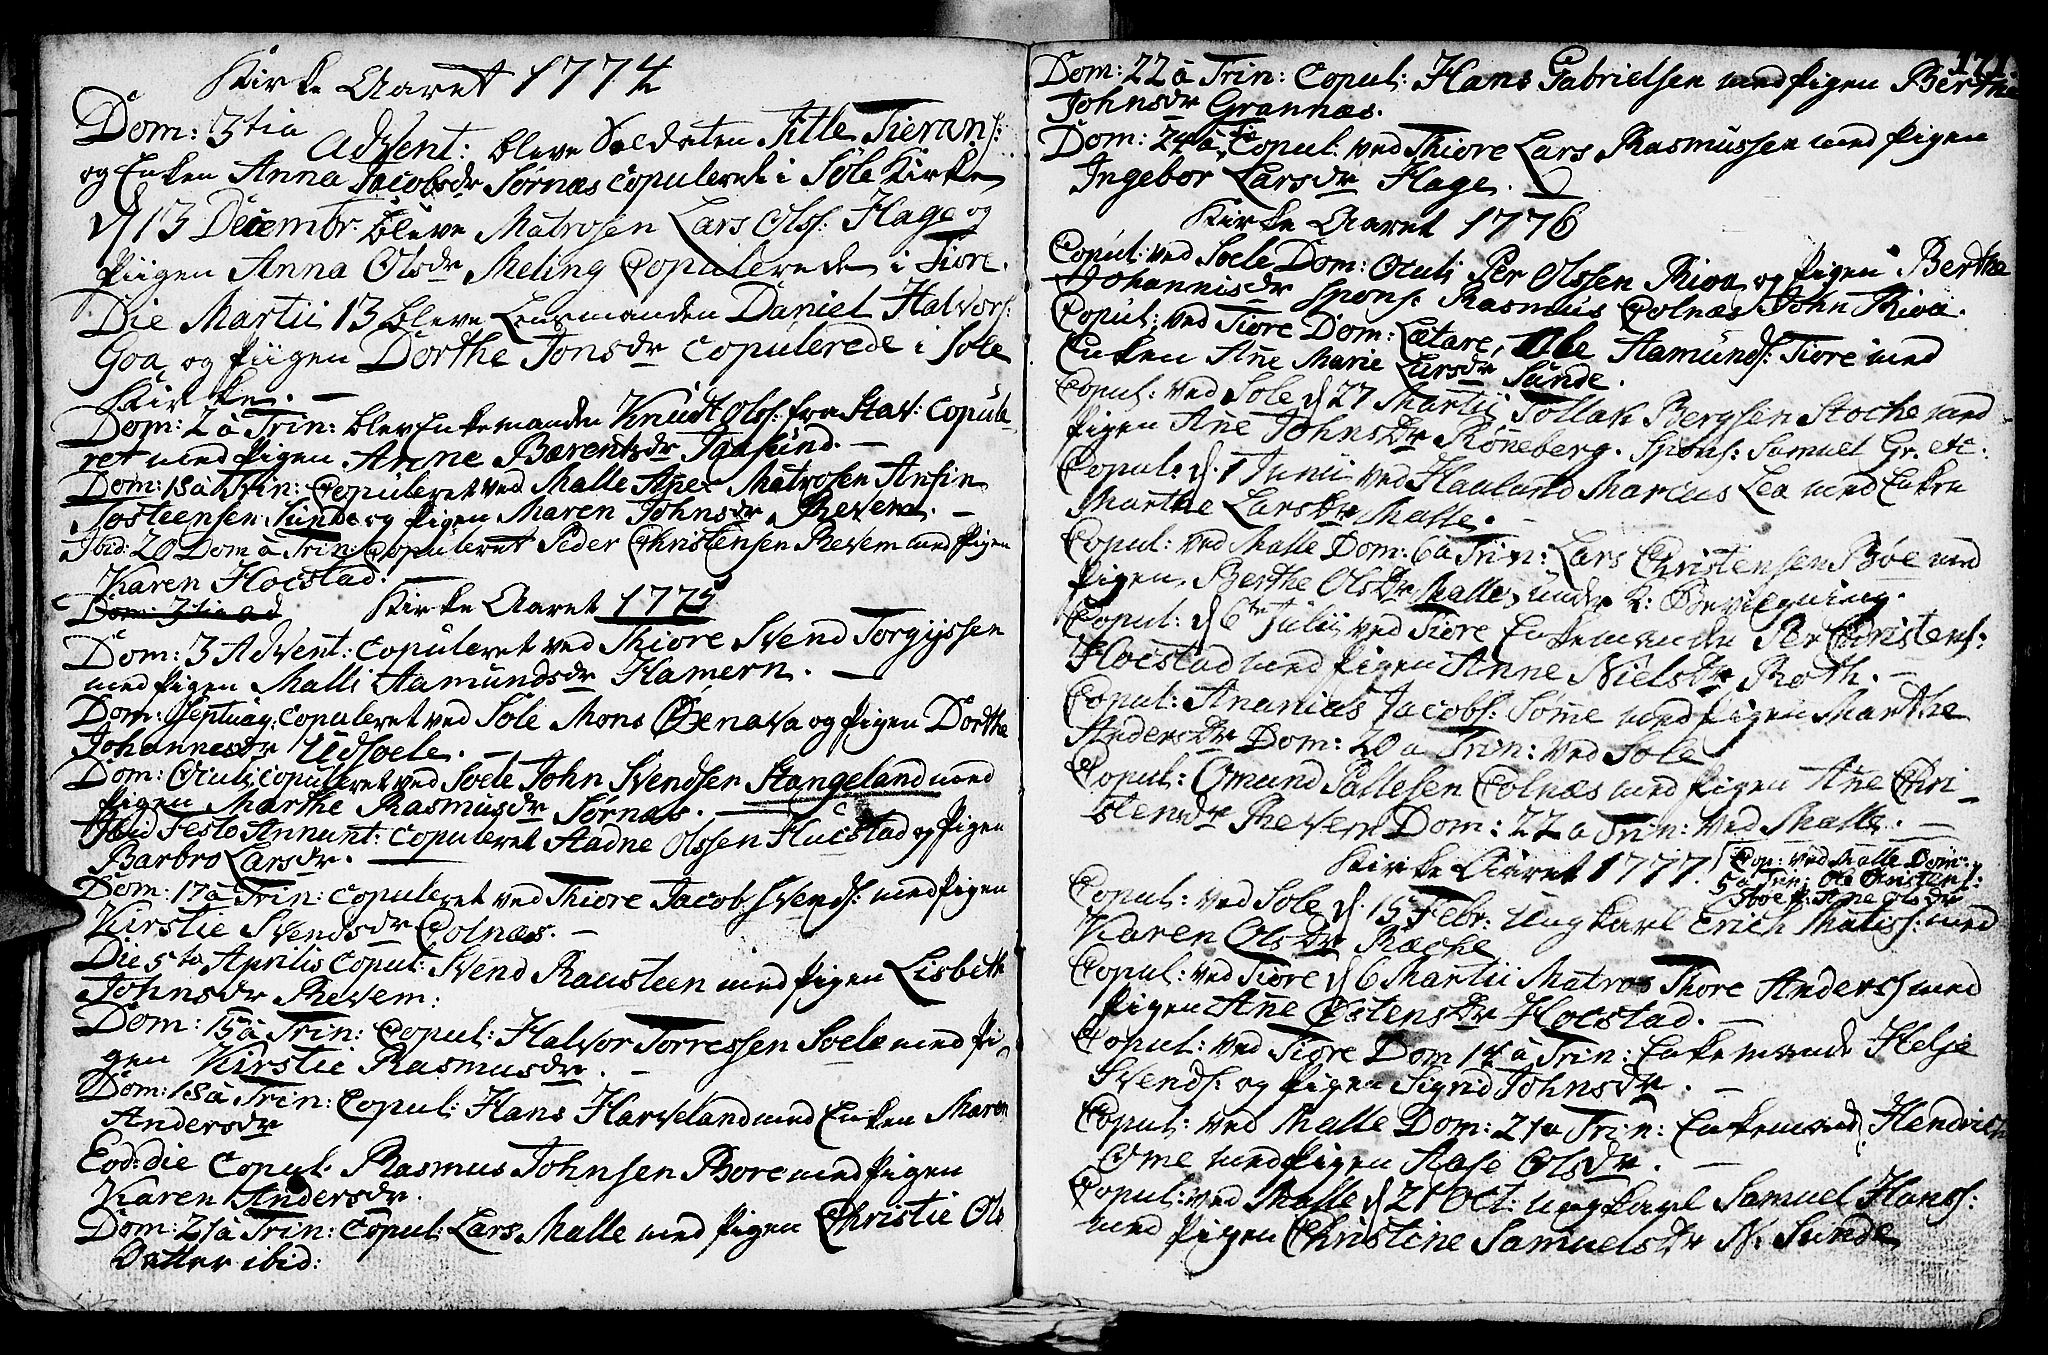 Kirke Aaret 1774
Dom: 3tia Advent: bleve Soldaten Title Tierans:
og Enken Anna Jacobsdr Sørnæs copulerede i Sole Kirke
d 13 Decembr: bleve Matrosen Lars Olss: Hage og
Piigen Anna Olsdr Meling Copulerede i Tiore.
Die Martii 13 bleve Lensmanden Daniel Halvors:
Goa og Piigen Dorthe Jonsdr copulerede i Sole
Kirke. —
Dom: 2 à Trin: blev Enkemanden Knudt Olss: fra Stav: copule
ret med Pigen Anne Bærentsdr Tansund. —
Dom: 18 à Trin: Copuleret ved Malle Matrosen Ansin
Josteensen Sunde og Pigen Maren Johnsdr Revem. —
Ibid: 20 Dom à Trin: Copuleret Peder Christensen Revem med Pigen
Karen Hocstad.
Dom: 3tia ad Kirke Aaret 1775
Dom: 3 Advent: copuleret ved Thiore Svend Torgijssen
med Pigen Malli Aamundsdr Hamern. —
Dom: Septuag: copuleret ved Sole Mons Øxenava og Pigen Dorthe
Johannesdr Udsoele. —
Dom: Oculi copuleret ved Soele John Svendsen Stangeland med
Pigen Marthe Rasmusdr Sørnæs. —
Ibid Festo Annunt: copuleret Aadne Olssen Hucstad og Pigen
Barbro Larsdr. —
Dom: 17 à Trin: copuleret ved Thiore Jacob Svends: med Pigen
Kirstie Svendsdr Colnæs. —
Die 5to Aprilis Copul: Svend Rausteen med Pigen Lisbeth
Johnsdr Revem:
Dom: 15 à Trin: Copul: Halvor Torressen Soele med Pi
gen Kirstie Rasmusdr. —
Dom: 18 à Trin: Copul: Hans Harveland med Enken Maren
Andersdr
Eod: die Copul. Rasmus Johnsen Bore med Pigen
Karen Andersdr.
Dom: 21 à Trin: Copul: Lars Malle med Pigen Christie Ols
Datter ibid:
171.
Dom: 22 à Trin: Copul: Hans Gabrielsen med Pigen Berthe
Johnsdr Grannæs.
Dom: 24 à Copul: ved Thiore Lars Rasmussen med Pigen
Ingebor Larsdr Hage.
Kirke Aaret 1776
Copul: ved Soele Dom: Oculi Per Olssen Risa og Pigen Berthe
Johannisdr Spons: Rasmus Colnæs, John Risa.
Copul: ved Tiore Dom: Lætare, Ole Aamunds: Tiore med
Enken Ane Marie Larsdr Sunde.
Copul: ved Sole d 27 Martii Tollak Bergsen Stocke med
Pigen Ane Johnsdr Røneberg. Spons: Samuel Gr. etc:
Copul: d. 1 Junii ved Haaland Marcus Lea med Enken
Marthe Larsdr Malle. —
Copul: ved Malle Dom: 6 à Trin: Lars Christensen Bøe med
Pigen Berthe Olsdr Malle, under k: Bevilgning.
Copul: d 6te Julii ved Tiore Enkemanden Per Christens:
Hocstad med Pigen Anne Nielsdr Roth. —
Copul: Ananias Jacobs: Søme med Pigen Marthe
Andersdr Dom: 20 à Trin: ved Sole
Copul: Omund Pallesen Colnæs med Pigen Ane Chri
stensdr Revem Dom: 22 à Trin: ved Malle. —
Kirke Aaret 1777. Cop: ved Malle Dom:
5 à Trin: Ole Christens:
Bøe P: Ane Olsdr
Copul: ved Sole d. 15 Febr: Ungkarl Erich Matiss: med
Karen Olsdr Ræche
Copul: ved Tiore d 6 Martii Matros Thore Anders: med
Pigen Ane Østensdr Hocstad. —
Copul: ved Tiore Dom 14 à Trin: Enkemand Helje
Svends: og Pigen Sigrid Johnsdr. —
Copul: ved Malle Dom: 21 à Trin: Enkemand Hendrich
Ome med Pigen Aase Olsdr. —
Copul: ved Malle d 21 Oct: Ungkarl Samuel Hans:
med Pigen Christine Samuelsdr N: Sunde